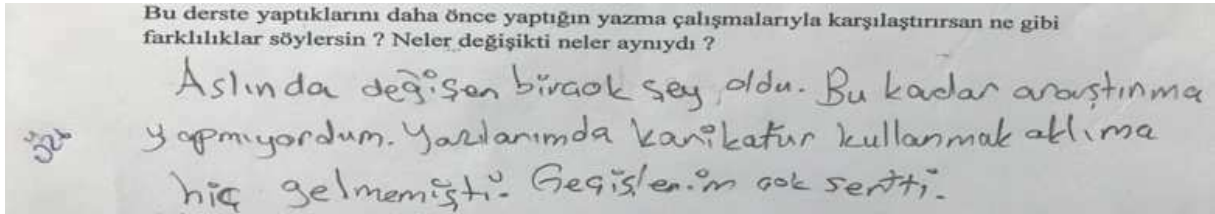 Bu derste yaptıklarını daha önce yaptığın yazma çalışmalarıyla karşılaştırırsan ne gibi
farklılıklar söylersin ? Neler değişikti neler aynıydı ?
Aslında değişen birçok şey oldu. Bu kadar araştırma
yapmıyordum. Yazılarımda karikatür kullanmak aklıma
hiç gelmemişti. Geçişlerim çok sertti.